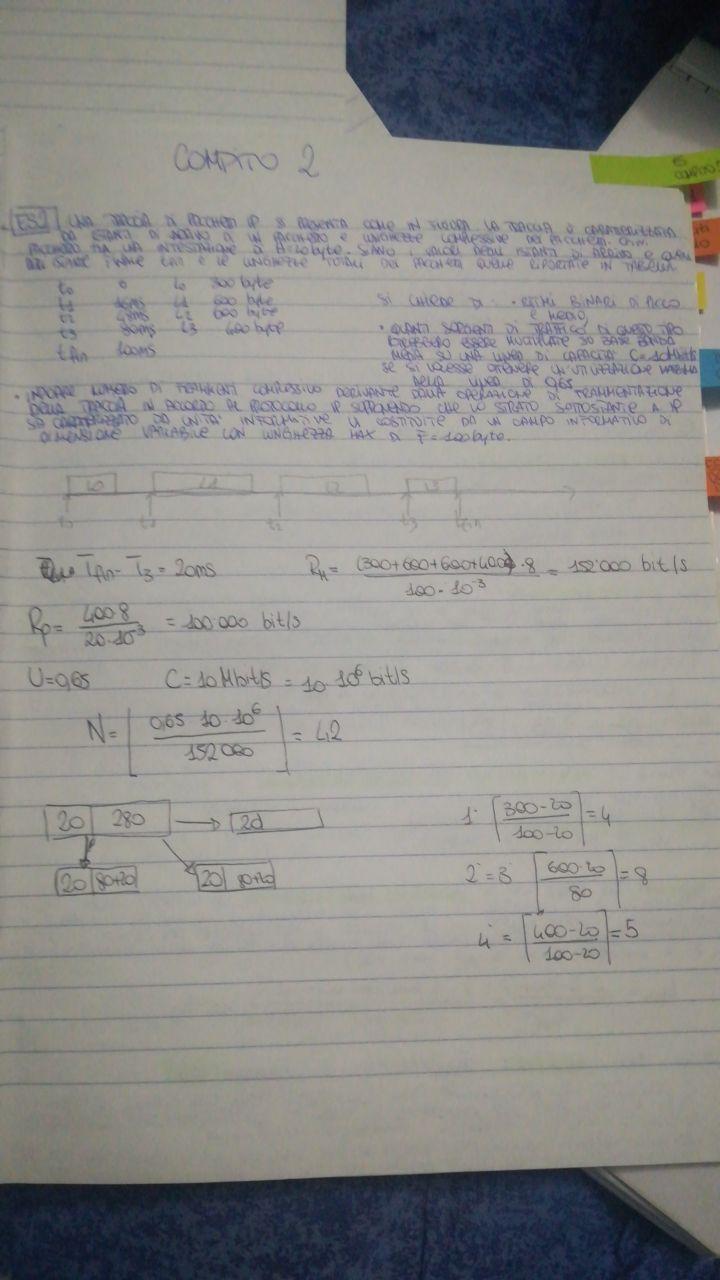 COMPITO 2
ES1 UNA TRACCIA DI PACCHETTI IP SI PRESENTA COME IN FIGURA. LA TRACCIA È CARATTERIZZATA
DA ISTANTI DI ARRIVO DI UN PACCHETTO E LUNGHEZZE COMPLESSIVE DEI PACCHETTI.
PACCHETTO HA UNA INTESTAZIONE DI H=20byte. SIANO I VALORI DEGLI ISTANTI DI ARRIVO E
ISTANTE FINALE tfin E LE LUNGHEZZE TOTALI DEI PACCHETTI QUELLE RIPORTATE IN TABELLA
t0 0 L0 300 byte
t1 L1 600 byte
t2 L2 600 byte
t3 80ms L3 400 byte
tfin 100ms
SI CHIEDE DI: • RITMI BINARI DI PICCO
E MEDIO
• QUANTI SORGENTI DI TRAFFICO DI QUESTO TIPO
POSSONO ESSERE MULTIPLATE SU BASE BANDA
MEDIA SU UNA LINEA DI CAPACITÀ C=10Mbit/s
SE SI VOLESSE OTTENERE UN'UTILIZZAZIONE MASSIMA
DELLA LINEA DI 0,65
• INDICARE NUMERO DI FRAMMENTI COMPLESSIVO DERIVANTE DALLA OPERAZIONE DI FRAMMENTAZIONE
DELLA TRACCIA IN ACCORDO AL PROTOCOLLO IP SUPPONENDO CHE LO STRATO SOTTOSTANTE A IP
SIA CARATTERIZZATO DA UNITÀ INFORMATIVE COSTITUITE DA UN CAMPO INFORMATIVO DI
DIMENSIONE VARIABILE CON LUNGHEZZA MAX DI F=100byte.
L0 L1 L2 L3
t0 t1 t2 t3 tfin
Tfin - T3 = 20ms
RM = (300+600+600+400)·8 / 100·10^-3 = 152'000 bit/s
Rp = 400·8 / 20·10^-3 = 100'000 bit/s
U=0,65 C=10Mbit/s = 10·10^6 bit/s
N = ⌊ 0,65·10·10^6 / 152000 ⌋ = 42
20 280 → 20
20 80+20 20 80+20
1· ⌈300-20 / 100-20⌉ = 4
2 = 3 ⌈600-20 / 80⌉ = 8
4 = ⌈400-20 / 100-20⌉ = 5